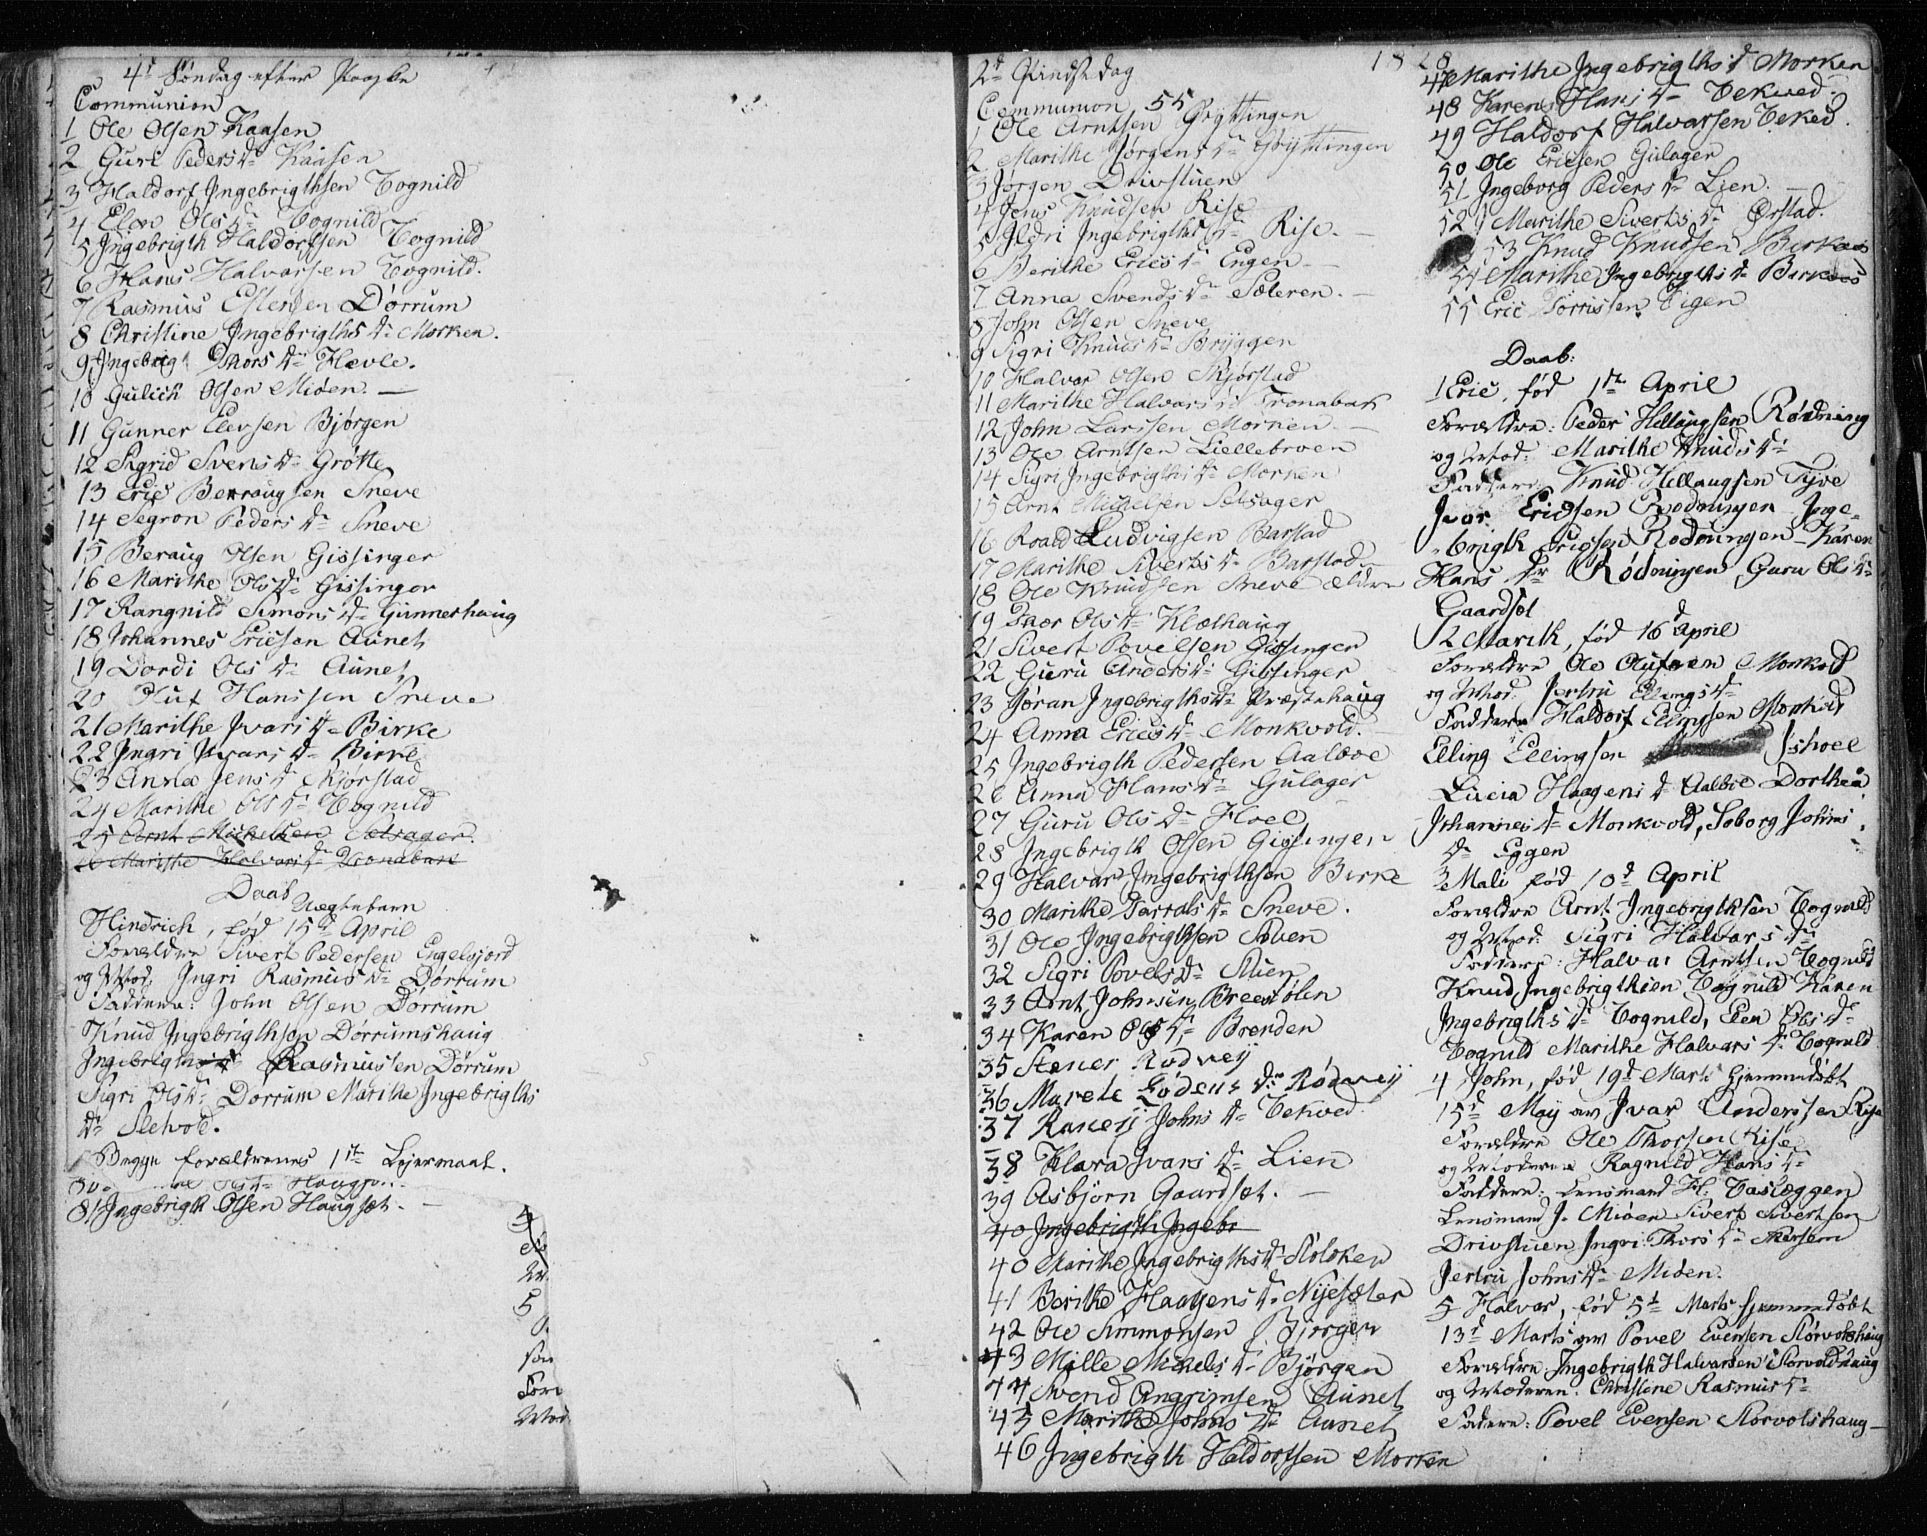 4d Søndag efter Paaske
Communion
1 Ole Olsen Kaasen
2 Guri Pedersdr Kaasen
3 Haldorf Ingebrigthsen Vognild
4 Elen Olsdr Vognild
5 Ingebrigth Haldorfsen Vognild
6 Hans Halvarsen Vognild.
7 Rasmus Dørrum
8 Christine Ingebrigthsdr Morken.
9 Ingebrig Thorsdr Hævle.
10 Gulich Olsen Miøen. —
11 Gunner Elevsen Bjørgen
12 Sigrid Svensdr Grøtte
13 Eric Berraugsen Sneve
14 Segron Pedersdr Sneve
15 Beraug Olsen Gissinger
16 Marithe Olsdr Gissinger
17 Rangnild Simonsdr Gunnerhaug
18 Johannes Ericsen Aunet
19 Dordi Olsdr Aunet
20 Oluf Hanssen Sneve
21 Marithe Ivarsdr Birke
22 Ingri Ivarsdr Birke
23 Anna Jensdr Skjørstad
24 Marithe Olsdr Vognild
25 Arnt Michelsen Sætrager.
26 Marithe Halvarsdr Tronabak
Daab
Uægtebarn
Hindrich, fød 15d April
Forældre Sivert Pedersen Engelsjord
og Mod: Ingri Rasmusdr Dørrum
Faddere: John Olsen Dørrum
Knud Ingebrigthsen Dørrumshaug
Ingebrigth Rasmussen Dørrum
Sigri Olsdr Dørrum Marithe Ingebrigths
dr Sletvold.
Begge forældrenes 1ste Lejermaal.
31 Ingebrigth Olsen Haugsæt. —
5
Fore
Mod
1828
2d Pindsedag
Communion 55
1 Ole Arntsen Gryttingen
2 Marithe Jørgensdr Gryttingen
3 Jørgen Drivstuen
4 Jens Knudsen Rise
5 Ildri Ingebrigthsdr Rise. —
6 Berithe Ericsdr Engen —
7 Anna Svendsdr Sæteren. —
8 John Olsen Sneve
9 Sigri Knudsdr Bryggen
10 Halvor Olsen Skjørstad
11 Marithe Halvarsdr Tronabak
12 John Larssen Mornen. —
13 Ole Arntsen Liellebroen
14 Sigri Ingebrigthsdr Morken
15 Arnt Michelsen Sætrager
16 Roald Ludvigsen Barstad
17 Marithe Sivertsdr Barstad.
18 Ole Knudsen Sneve ældre
19 Thor Olsdr Klethaug
21 Sivert Povelsen Gissinger
22 Guru Andersdr Gissinger
23 Jøran Ingebrigthsdr Præstehaug
24 Anna Ericsdr Monkvold. —
25 Ingebrigth Pedersen Aalbue
26 Anna Hansdr Gulager
27 Guru Olsdr Hoel
28 Ingebrigth Olsen Gissingen
29 Halvar Ingebrigthsen Birke
30 Marithe Torralsdr Sneve.
31 Ole Ingebrigthsen Støen
32 Sigri Povelsdr Stuen
33 Arnt Johnsen Breesølen
34 Karen Olsdr Brenden
35 Stener Rødvej
36 Marete Lødensdr Rødvej
37 Ranej Johnsdr Vekved
38 Klara Ivarsdr Lien
39 Asbjørn Gaardsæt. —
40 Ingebrigth Ingebr
40 Marithe Ingebrigthsdr Stølsken
41 Berithe Haagensdr Nyesæter
42 Ole Simmonsen Bjørgen
43 Mille Michelsdr Bjørgen
44 Svend Anggrimsen Aunet
45 Marithe Johnsdr Aunet
46 Ingebrigth Haldorfsen Morken
47 Marithe Ingebrigthsdr Morken
48 Karen Hansdr Vekved
49 Haldorf Halvarsen Veked.
50 Ole Ericsen Gulager
51 Ingeborg Pedersdr Lien. —
52 Marithe Sivertsdr Ørstad.
53 Knud Knudsen Birkaas
54 Marithe Ingebrigthsdr Birkaas
55 Eric Torrissen Vigen
Daab:
1 Eric, fød 1ste April
Forældre: Peder Hellaugsen Rødning
og Mod: Marithe Knudsdr
Faddere Knud Hellaugsen Tyve
Ivar Ericsen Rodningen Inge-
brigth Ericssen Rodningen Karen
Hansdr Rødningen Guru Olsdr
Gaardsæt
2 Marith, fød 16d April
Forældre Ole Olufsen Monkvold
og Mod. Jertru Ellingsdr
Faddere Haldorf Ellingsen
Elling Ellingsen Ishoel
Lucia Haagensdr Aalbue Dorthea
Johannesdr Monkvold, Soborg Johns
dr Eggen
3 Mali fød 10d April
Forældre Arnt Ingebrigthsen Vognild
og Mod: Sigri Halvarsdr
Faddere: Halvar Arntsen Vognild
Knud Ingebrigthsen Vognild Karen
Ingebrigthsdr Vognild, Elen Olsdr
Vognild Marithe Halvarsdr Vognild
4 John, fød 19d Marts hjemmedøbt
15d May av Ivar Anderssen Rise
Forældre Ole Thorsen Rise
og Moderen Ragnild Hansdr
Faddere: Lensmand H. Vaslæggen
Lensmand J. Miøen Sivert Sivertsen
Drivstuen Ingri Thorsdr
Jertru Johnsdr Miøen.
5 Halvor, fød 5te Marts hjemmedøbt
13d Marts av Povel Evensen Storvolshaug
Forældre Ingebrigth Halvarsen Storvoldshaug
og Moderen. Christine Rasmusdr
Faddere: Povel Evensen Storvolshaug —